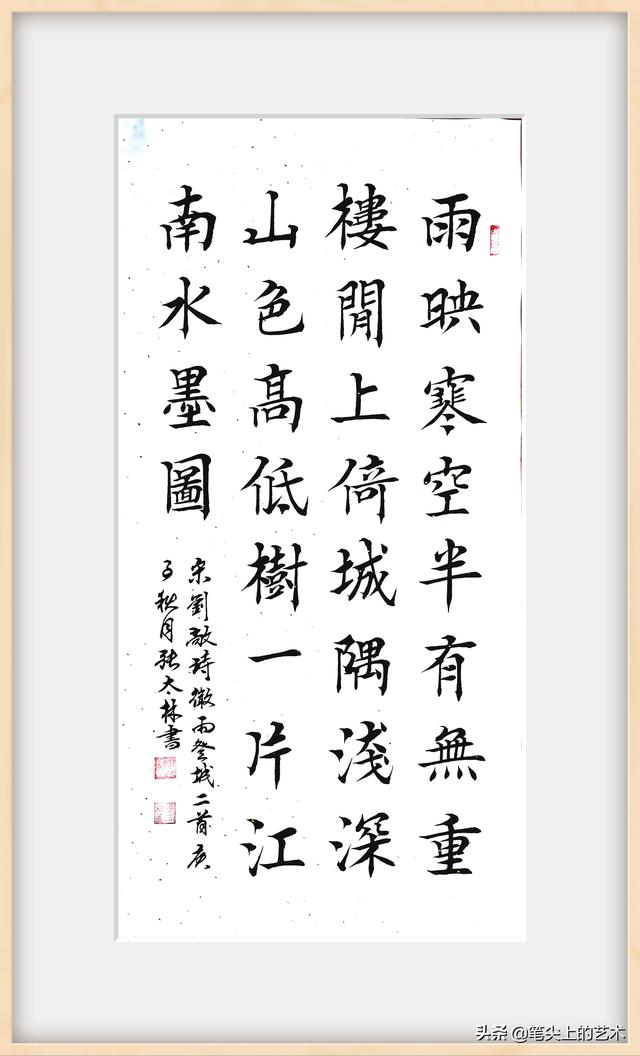 雨映寒空半有無重
樓閒上倚城隅淺深
山色高低樹一片江
南水墨圖
宋劉敞詩微雨登城二首庚
子秋月張太林書
头条 @笔尖上的艺术